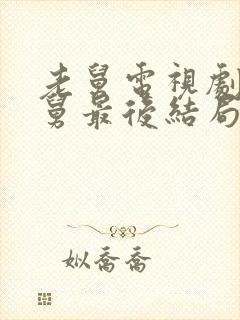 老舅電視劇
舅最後結局
姒喬喬